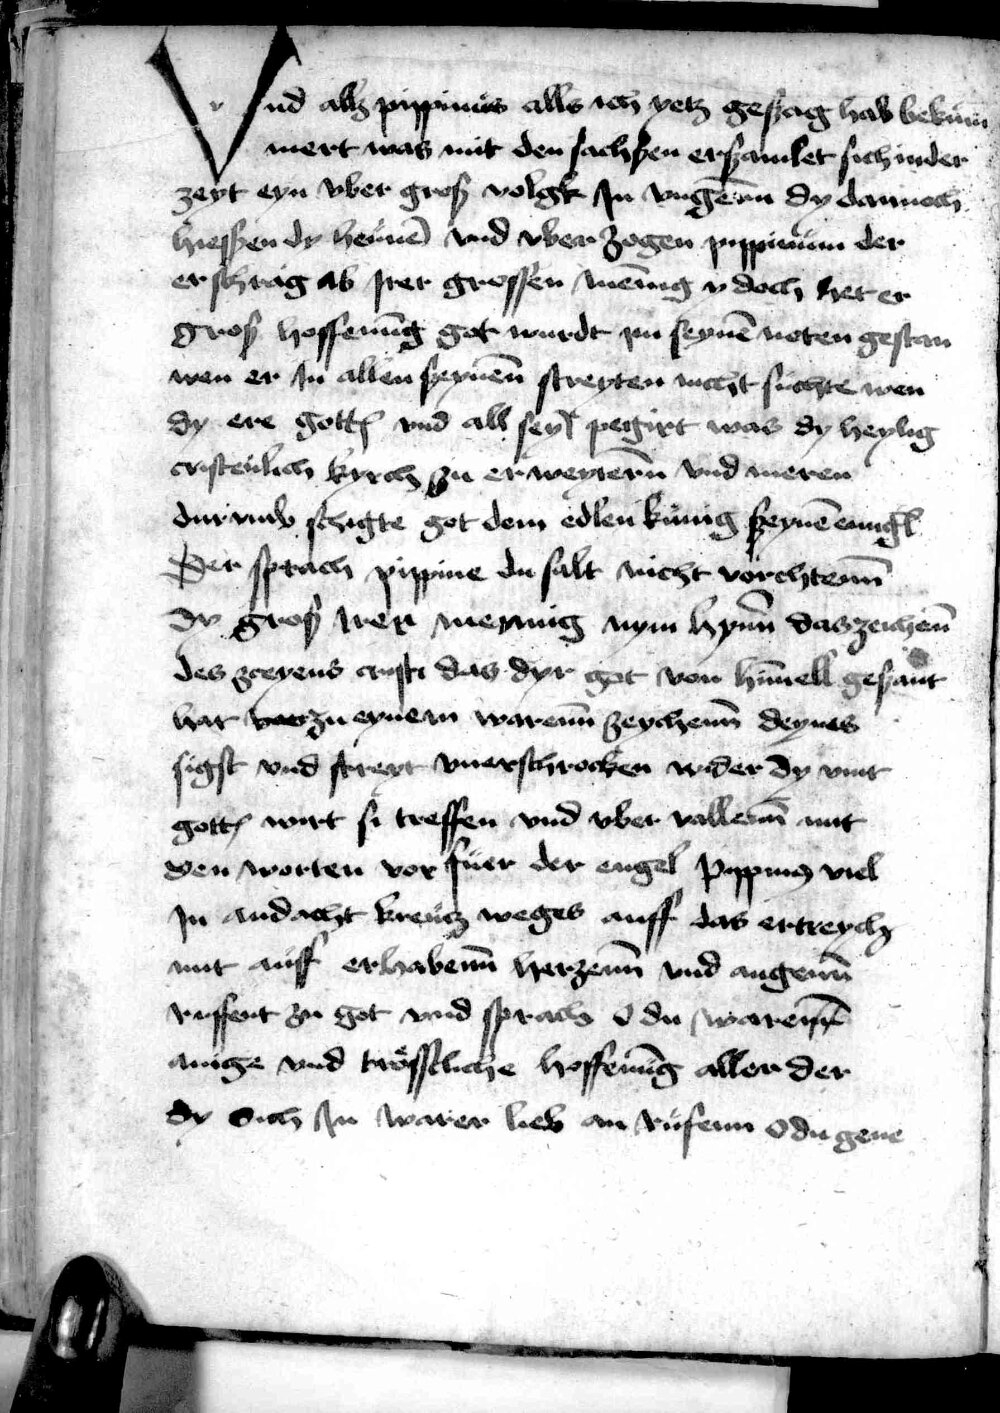 Vnd alß pippinus alls ich yetz geszag hab bekum
mert was mit den sachßen erßamlet sich inder
zeyt eyn vber groß volgk In vngerñ dy dannoch
hießen dy heünē vnd vber zogen pippinum der
erschrag ab Irer grossen mēnig v doch het er
groß hoffenūg got wurdt im seynē noten gestan
wen er In allen ßeynenn streyten nicht süchte wen
dy ere gottꝭ vnd all seyⁿ pegirt was dy heylig
cristenlich kyrch zu erweyternn vnd meren
darumb schigte got dem edlen künig ßeynē enngl
Der sprach pippine du salt nicht vörchtenn
Dy groß Irer mennig nym hynn das zeichenn
des creyens cristi das dyr got von himell gesant
hat zu eynem warenn zeychenn deynes
sigst vnd streyt vnerschrocken wider dy vint
gottꝭ wirt si treffen vnd vber vallenn mit
den worten vor füer der engel Pippinꝰ viel
In andacht kreütz weges auff das ertreych
mit aüff erhabenn herzenn vnd augenn
ruffent zu got vnd sprach O du warenn
ainige vnd trösstliche hoffenūg aller der
dy Sich In warer lieb an rüfenn O du gene